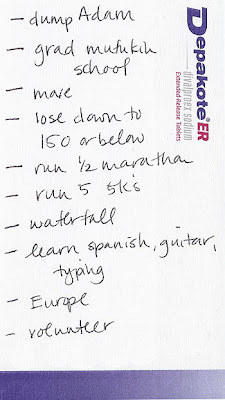 - dump Adam
- grad mufukin
school
- move
- lose down to
150 or below
- run 1/2 marathon
- run 5 5k's
- waterfall
- learn spanish, guitar,
typing
- Europe
- volunteer
Depakote® ER
divalproex sodium
Extended Release Tablets